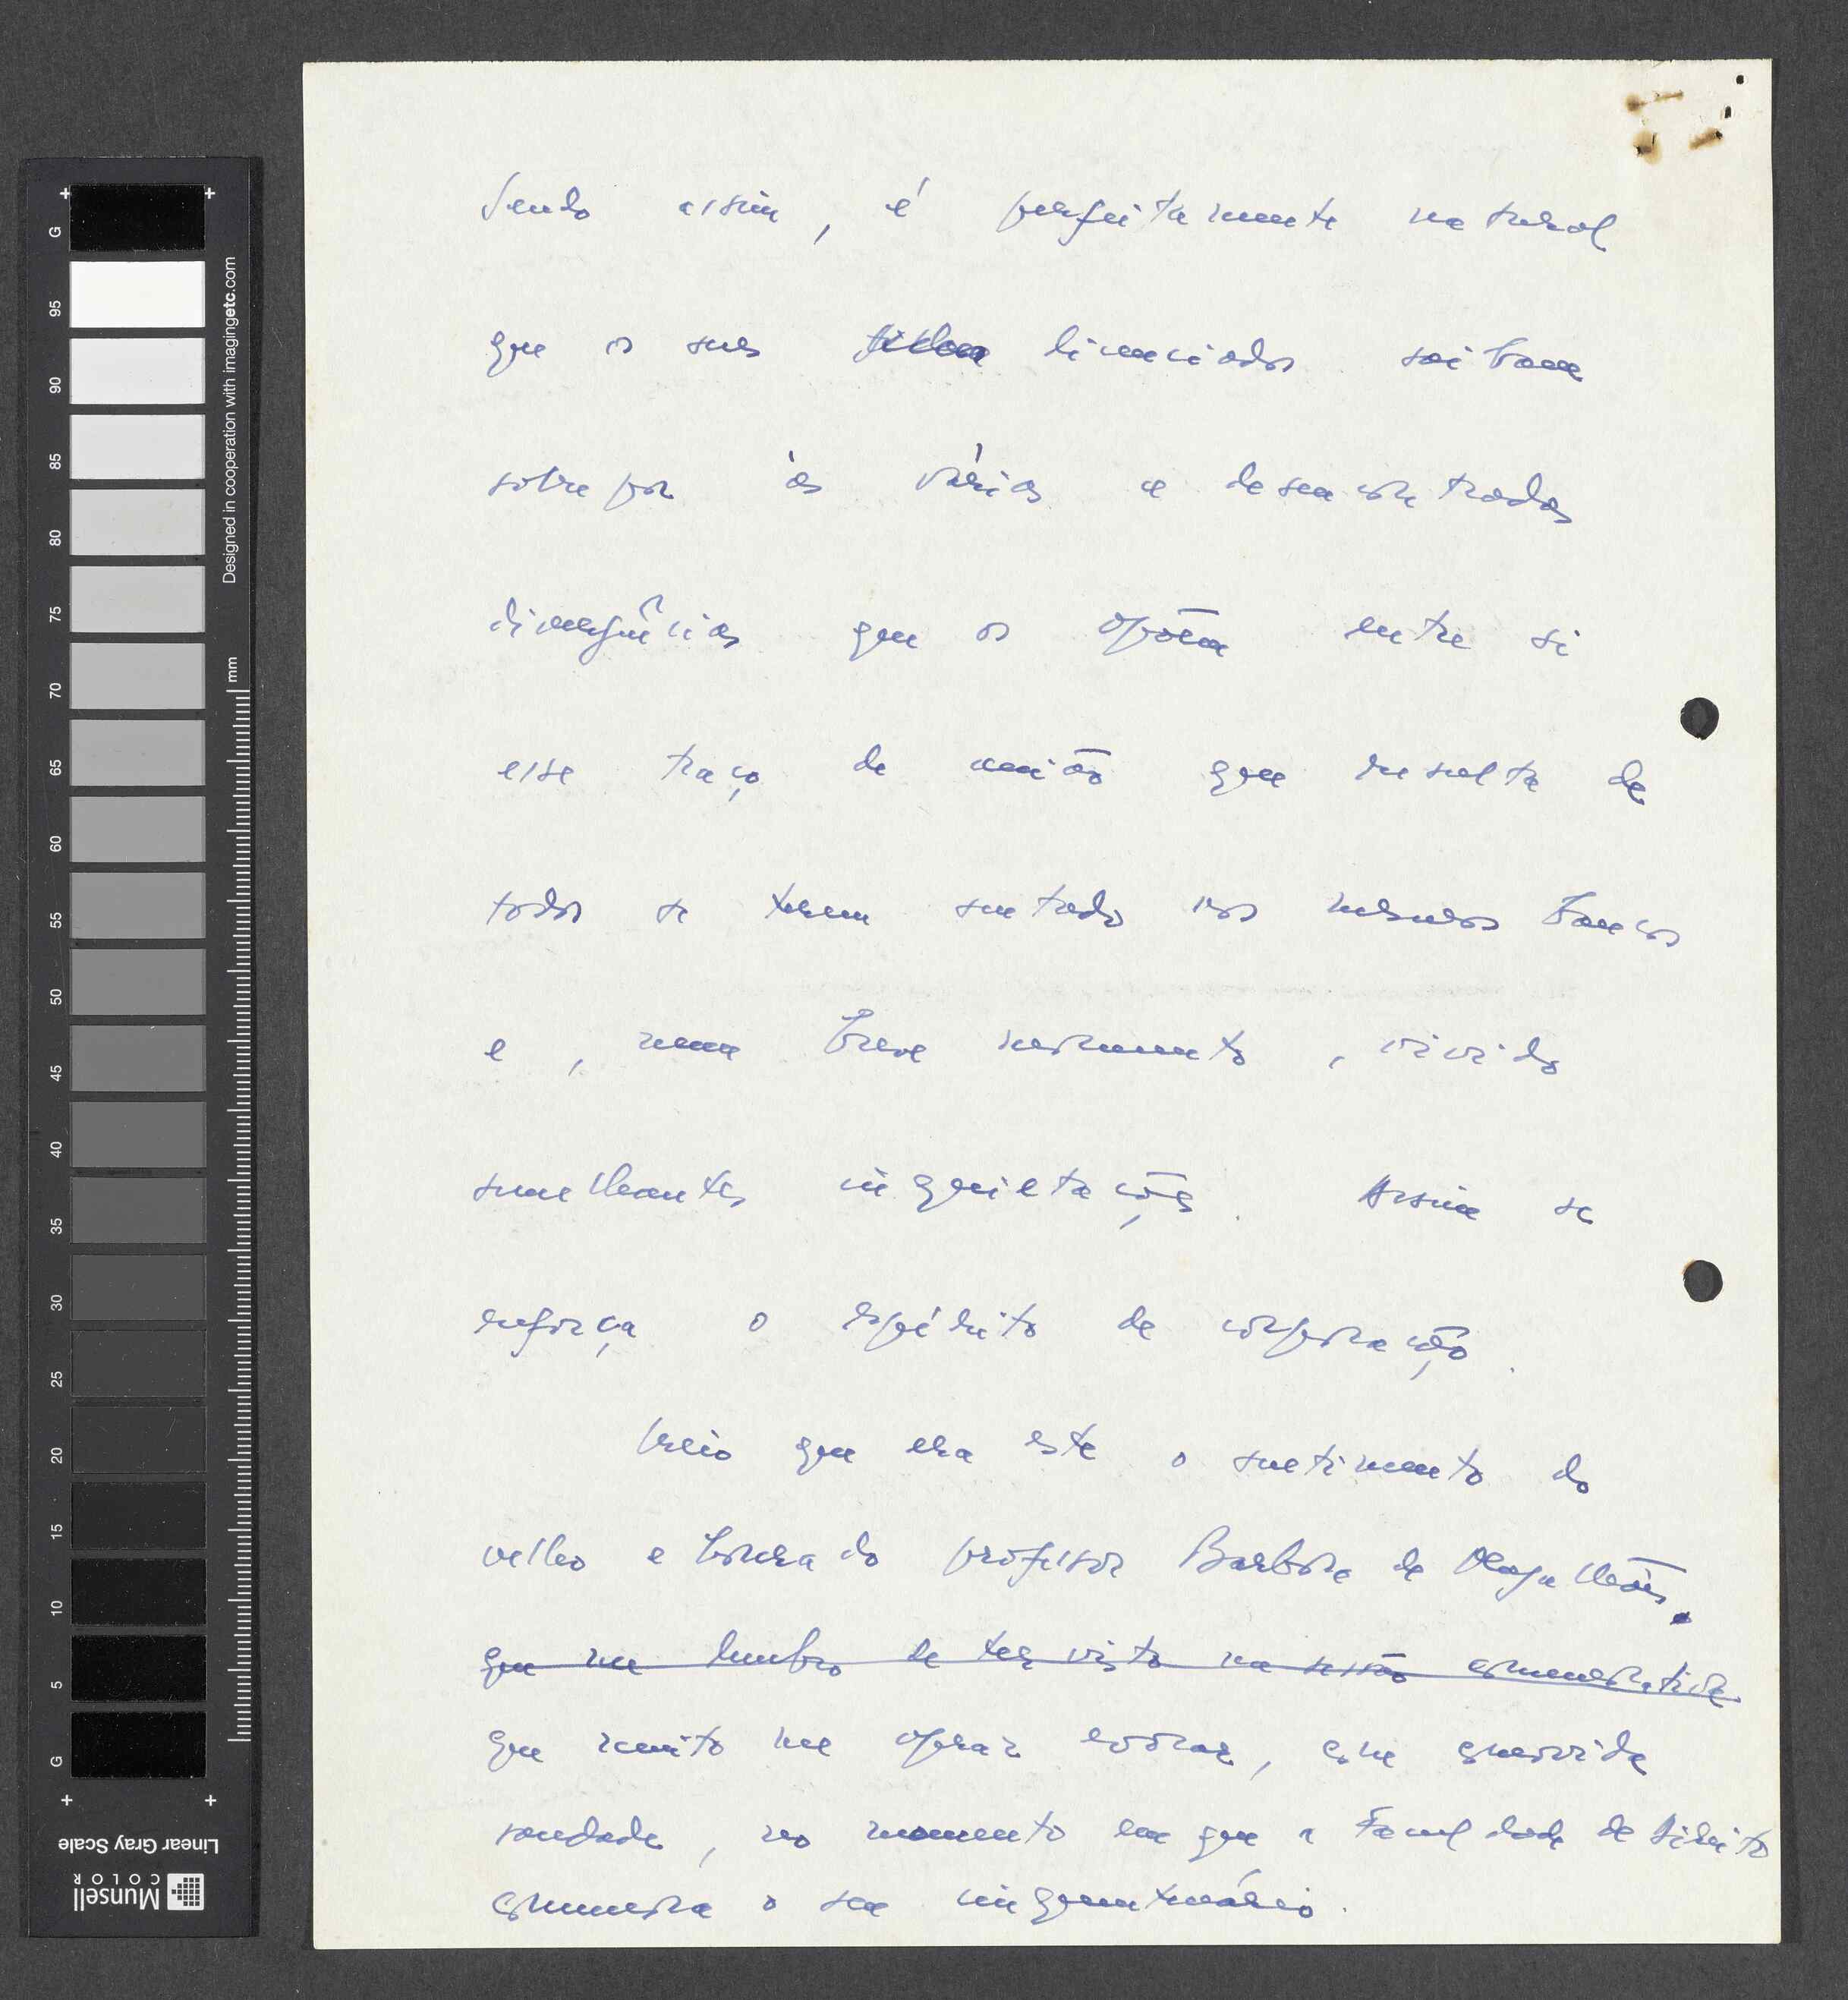 Sendo assim, é perfeitamente natural
que os seus licenciados saibam
sobrepor às várias e desencontradas
divergências que os opõem entre si
esse traço de união que resulta de
todos se terem sentado nos mesmos bancos
e, num breve momento, vivido
semelhantes inquietações. Assim se
reforça o espírito de corporação.
Creio que era este o sentimento do
velho e honrado professor Barbosa de Magalhães,
que me lembro de ter visto na sessão comemorativa
que muito me apraz evocar, com comovida
saudade, no momento em que a Faculdade de Direito
comemora o seu cinquentenário.
G 95 90 85 80 75 70 65 60 55 50 45 40 35 30 25 20 15 10 5 G
mm
Designed in cooperation with imagingetc.com
Linear Gray Scale
Munsell
COLOR